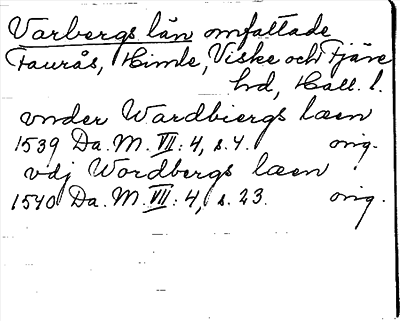 Varbergs län omfattade
Faurås, Himle, Viske och Fjäre
hd, Hall. l.
vnder Wardbiergs læn
1539 Da. M. VII: 4, s. 4. orig.
vdj Wordbergs læen
1540 Da. M. VII: 4, s. 23. orig.